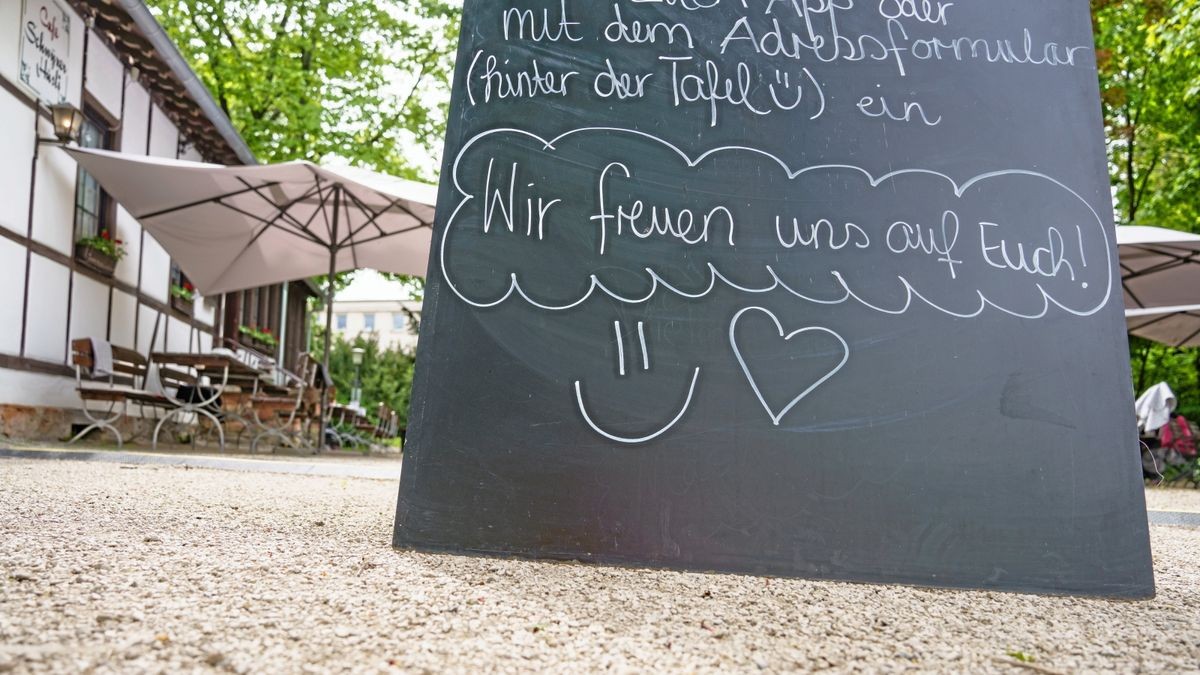 Café
App oder
mit dem Adressformular
(hinter der Tafel ü) ein
Wir freuen uns auf Euch!